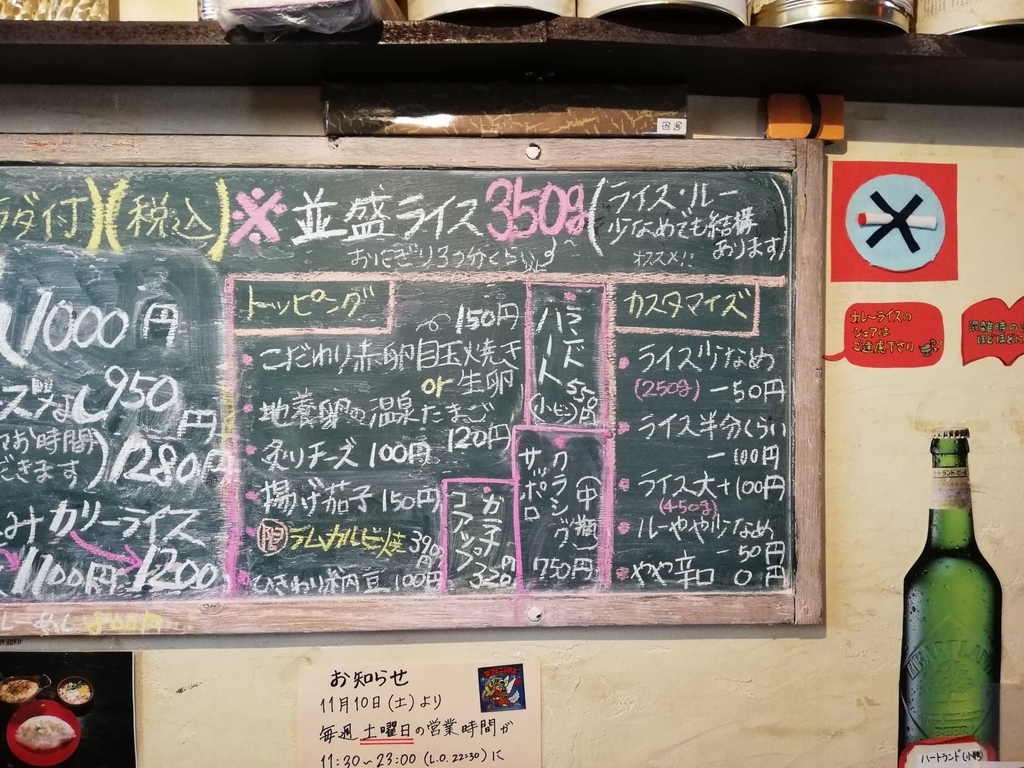 ラダ付)(税込)
※並盛ライス350g
(ライス・ルー
少なめでも結構
あります)
オススメ!!
おにぎり3コ分くらい
1000円
950
円
お時間
できます)
1280円
カリーライス
1100円
1200
800円
トッピング
150円
こだわり赤卵目玉焼き
or生卵
地養卵の温泉たまご
120円
炙りチーズ 100円
揚げ茄子 150円
限 ラムカルビ焼
390円
ひきわり納豆 100円
ハートランド
(小ビン)
550円
サッポロ
クラシック
(中瓶)
750円
ガラナ
コアップ
320円
カスタマイズ
ライス少なめ
(250g) -50円
ライス半分くらい
-100円
ライス大+100円
(450g)
ルーやや少なめ
-50円
やや辛口 0円
カレーライスの
シェアは
ご遠慮下さい
混雑時の
ほどほどに
お知らせ
11月10日(土)より
毎週 土曜日の営業時間が
11:30~23:00 (L.O.22:30)に
HEARTLAND
ハートランド(小瓶)